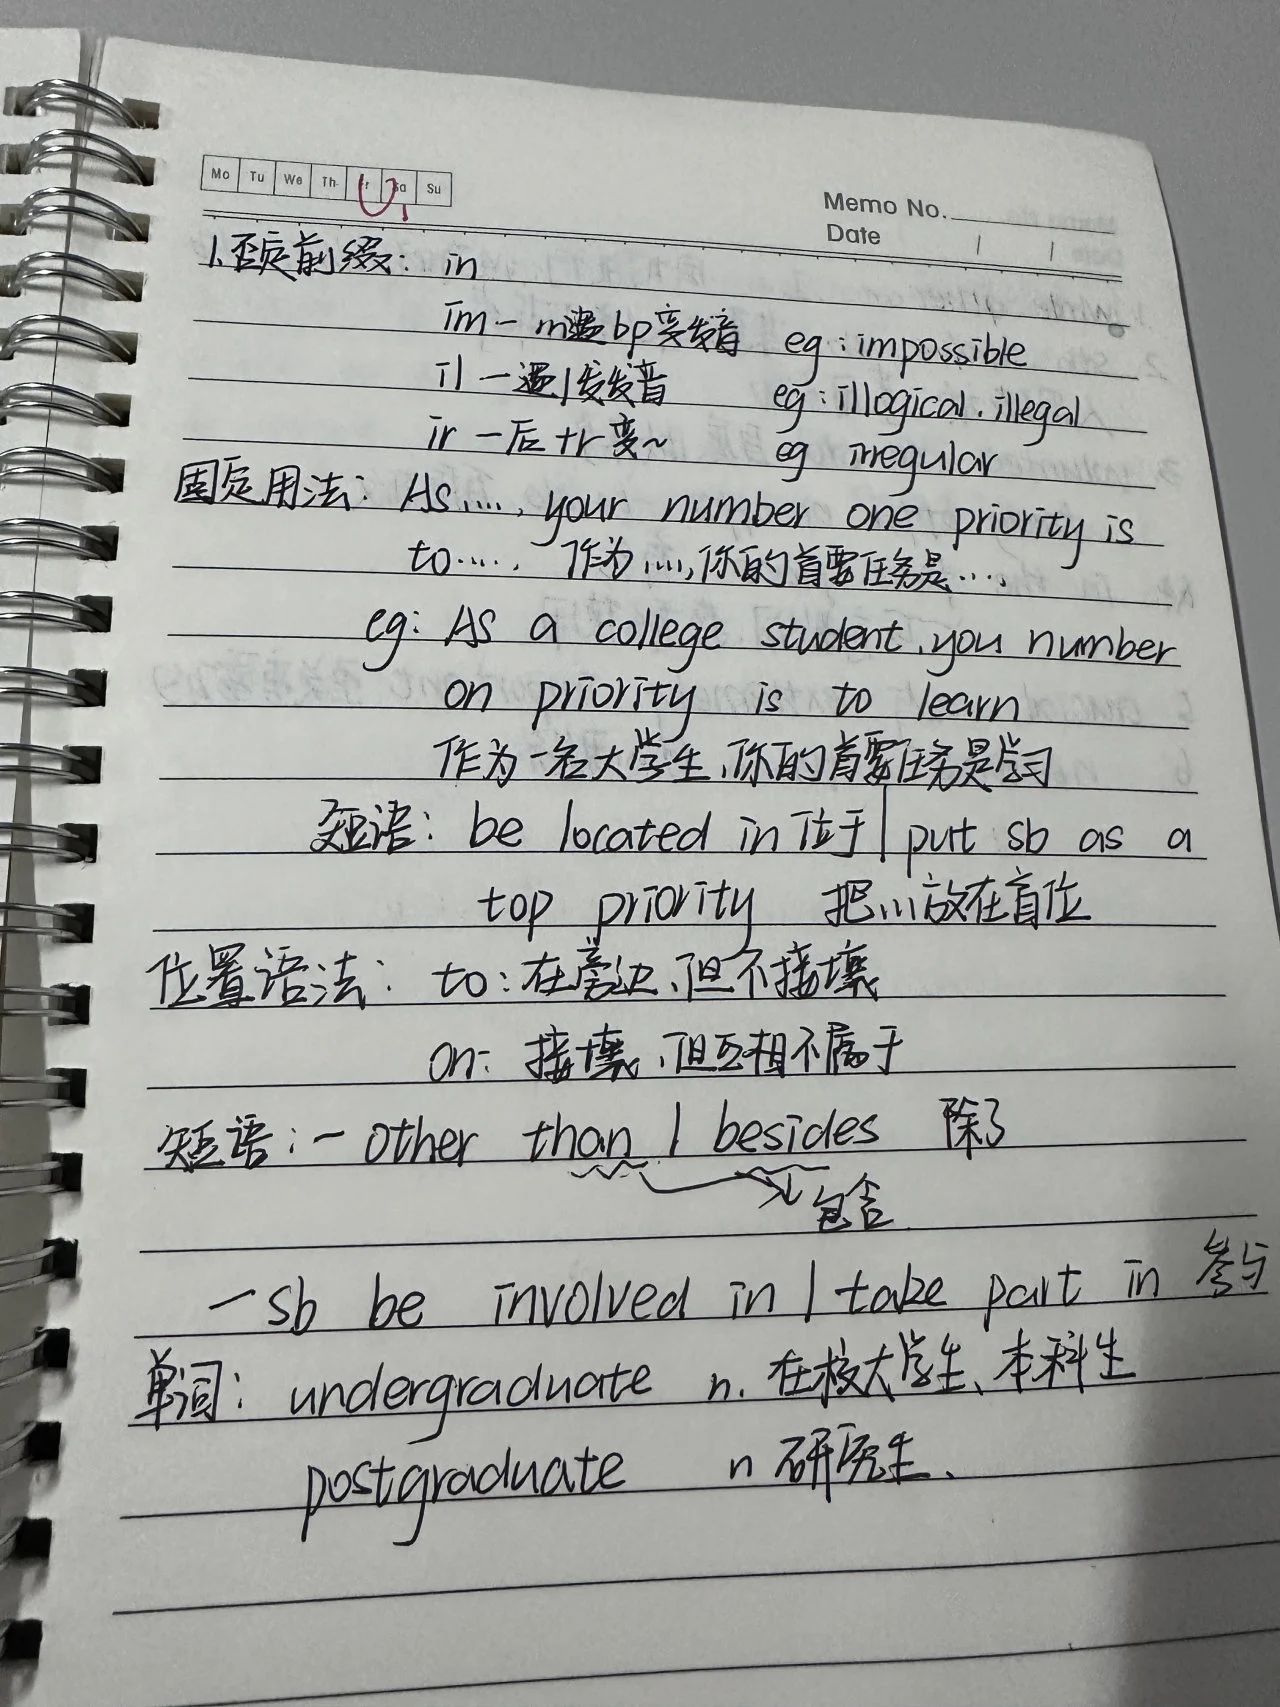 Mo Tu We Th Fr Sa Su
Memo No.
Date / /
1.否定前缀: in
im - m遇bp变发音 eg:impossible
il - 遇l变发音 eg:illogical.illegal
ir - 后+r变~ eg irregular
固定用法: As...., your number one priority is
to..... 作为....,你的首要任务是....
eg: As a college student,you number
on priority is to learn
作为一名大学生,你的首要任务是学习
短语: be located in位于|put sb as a
top priority 把...放在首位
位置语法: to:在旁边,但不接壤
on: 接壤,但互相不属于
短语:- other than / besides 除了
包含
- sb be involved in / take part in 参与
单词: undergraduate n. 在校大学生、本科生
postgraduate n 研究生.